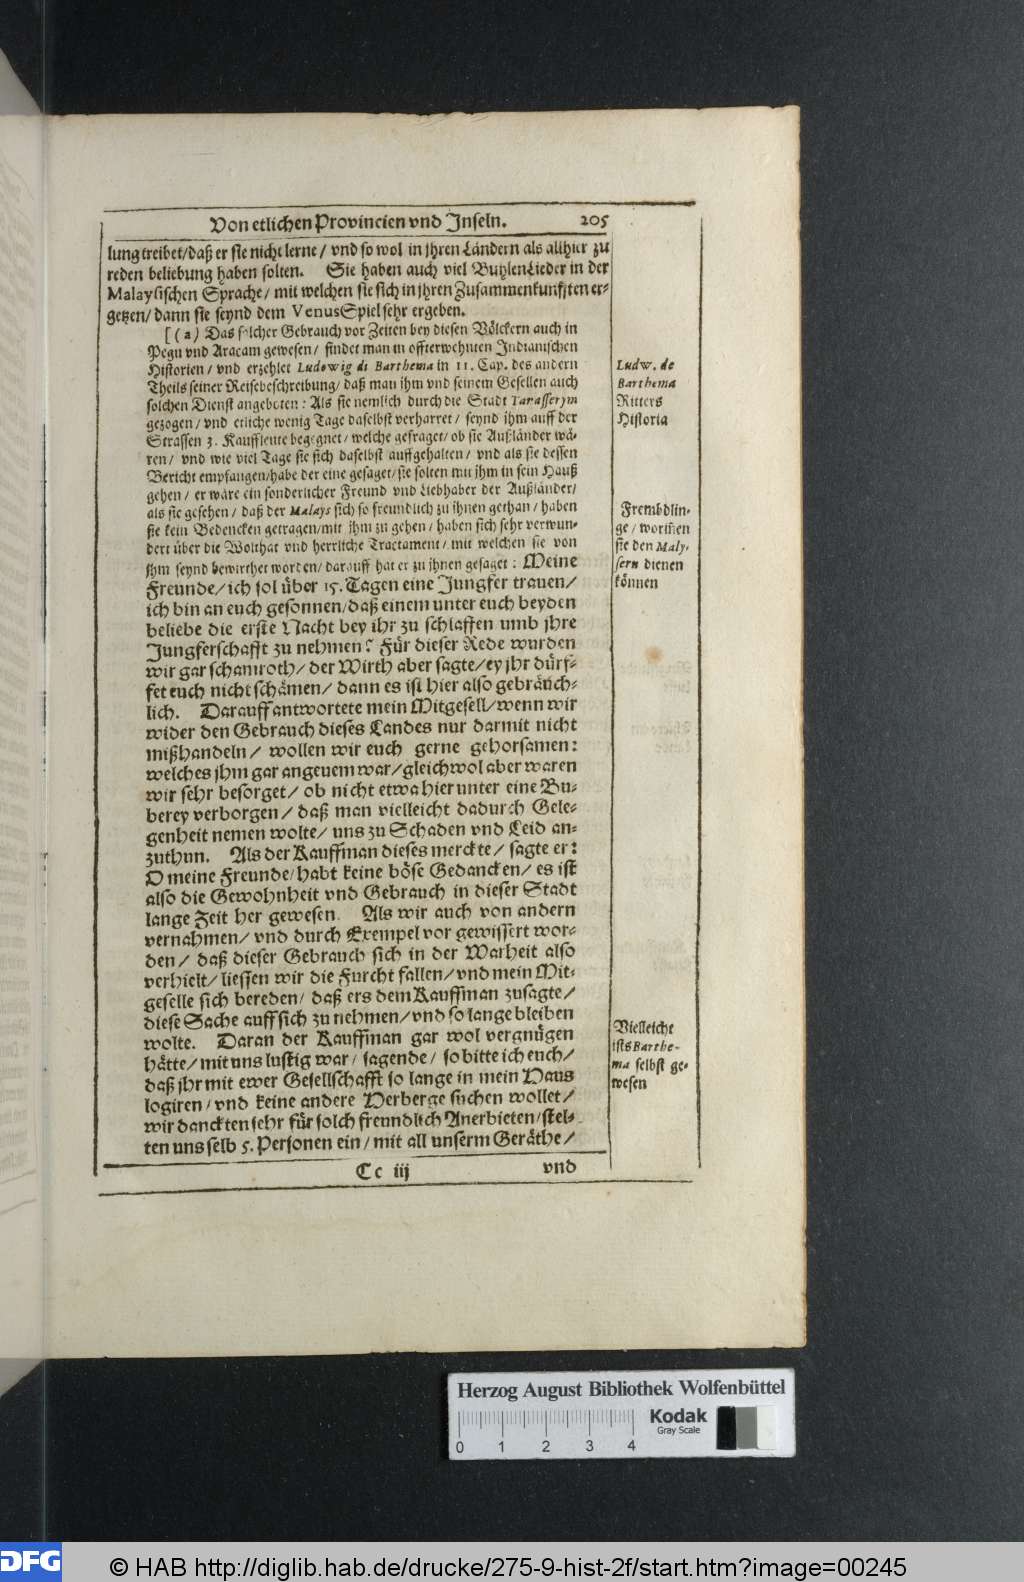 Von etlichen Provincien vnd Jnseln. 205
lung treibet/daß er sie nicht lerne/ vnd so wol in jhren Ländern als allhier zu
reden beliebung haben solten. Sie haben auch viel BuhlenLieder in der
Malayſischen Sprache/ mit welchen sie sich in jhren Zusammenkunfften er-
getzen/ dann sie seynd dem VenusSpiel sehr ergeben.
[(a) Das solcher Gebrauch vor Zeiten bey diesen Völckern auch in
Pegu vnd Aracam gewesen/ findet man in offterwehnten Jndianischen
Historien/ vnd erzehlet Ludowig di Barthema in 11. Cap. des andern
Theils seiner Reisebeschreibung/ daß man ihm vnd seinem Gesellen auch
solchen Dienst angeboten: Als sie nemlich durch die Stadt Tarasserym
gezogen/ vnd etliche wenig Tage daselbst verharret/ seynd ihm auff der
Strassen 3. Kauffleute begegnet/ welche gefraget/ ob sie Außländer wä-
ren/ vnd wie viel Tage sie sich daselbst auffgehalten/ vnd als sie dessen
Bericht empfangen/habe der eine gesaget/sie solten mit jhm in sein Hauß
gehen/ er wäre ein sonderlicher Freund vnd Liebhaber der Außländer/
als sie gesehen/ daß der Malays sich so freundlich zu ihnen gethan/ haben
sie kein Bedencken getragen/mit jhm zu gehen/ haben sich sehr verwun-
dert über die Wolthat vnd herrliche Tractament/ mit welchen sie von
jhm seynd bewirthet worden/ darauff hat er zu jhnen gesaget: Meine
Freunde/ich sol über 15. Tagen eine Jungfer trauen/
ich bin an euch gesonnen/daß einem unter euch beyden
beliebe die erste Nacht bey ihr zu schlaffen umb jhre
Jungferschafft zu nehmen? Für dieser Rede wurden
wir gar schamroth/ der Wirth aber sagte/ey jhr dürf-
fet euch nicht schämen/ dann es ist hier also gebräuch-
lich. Darauff antwortete mein Mitgesell/wenn wir
wider den Gebrauch dieses Landes nur darmit nicht
mißhandeln/ wollen wir euch gerne gehorsamen:
welches jhm gar angenem war/gleichwol aber waren
wir sehr besorget/ ob nicht etwa hierunter eine Bu-
berey verborgen/ daß man vielleicht dadurch Gele-
genheit nemen wolte/ uns zu Schaden vnd Leid an-
zuthun. Als der Kauffman dieses merckte/ sagte er:
O meine Freunde/habt keine böse Gedancken/ es ist
also die Gewohnheit vnd Gebrauch in dieser Stadt
lange Zeit her gewesen. Als wir auch von andern
vernahmen/ vnd durch Exempel vor gewissert wor-
den/ daß dieser Gebrauch sich in der Warheit also
verhielt/ liessen wir die Furcht fallen/ vnd mein Mit-
geselle sich bereden/ daß ers dem Kauffman zusagte/
diese Sache auff sich zu nehmen/ vnd so lange bleiben
wolte. Daran der Kauffman gar wol vergnügen
hätte/ mit uns lustig war/ sagende/ so bitte ich euch/
daß jhr mit ewer Gesellschafft so lange in mein Haus
logiren/ vnd keine andere Herberge suchen wollet/
wir danckten sehr für solch freundlich Anerbieten/stel-
ten uns selb 5. Personen ein/ mit all unserm Geräthe/
Cc iij vnd
Ludw. de
Barthema
Ritters
Historia
Frembdlin-
ge/ worinen
sie den Maly-
sern dienen
können
Vielleicht
ists Barthe-
ma selbst ge-
wesen
Herzog August Bibliothek Wolfenbüttel
Kodak
Gray Scale
0 1 2 3 4
DFG © HAB http://diglib.hab.de/drucke/275-9-hist-2f/start.htm?image=00245